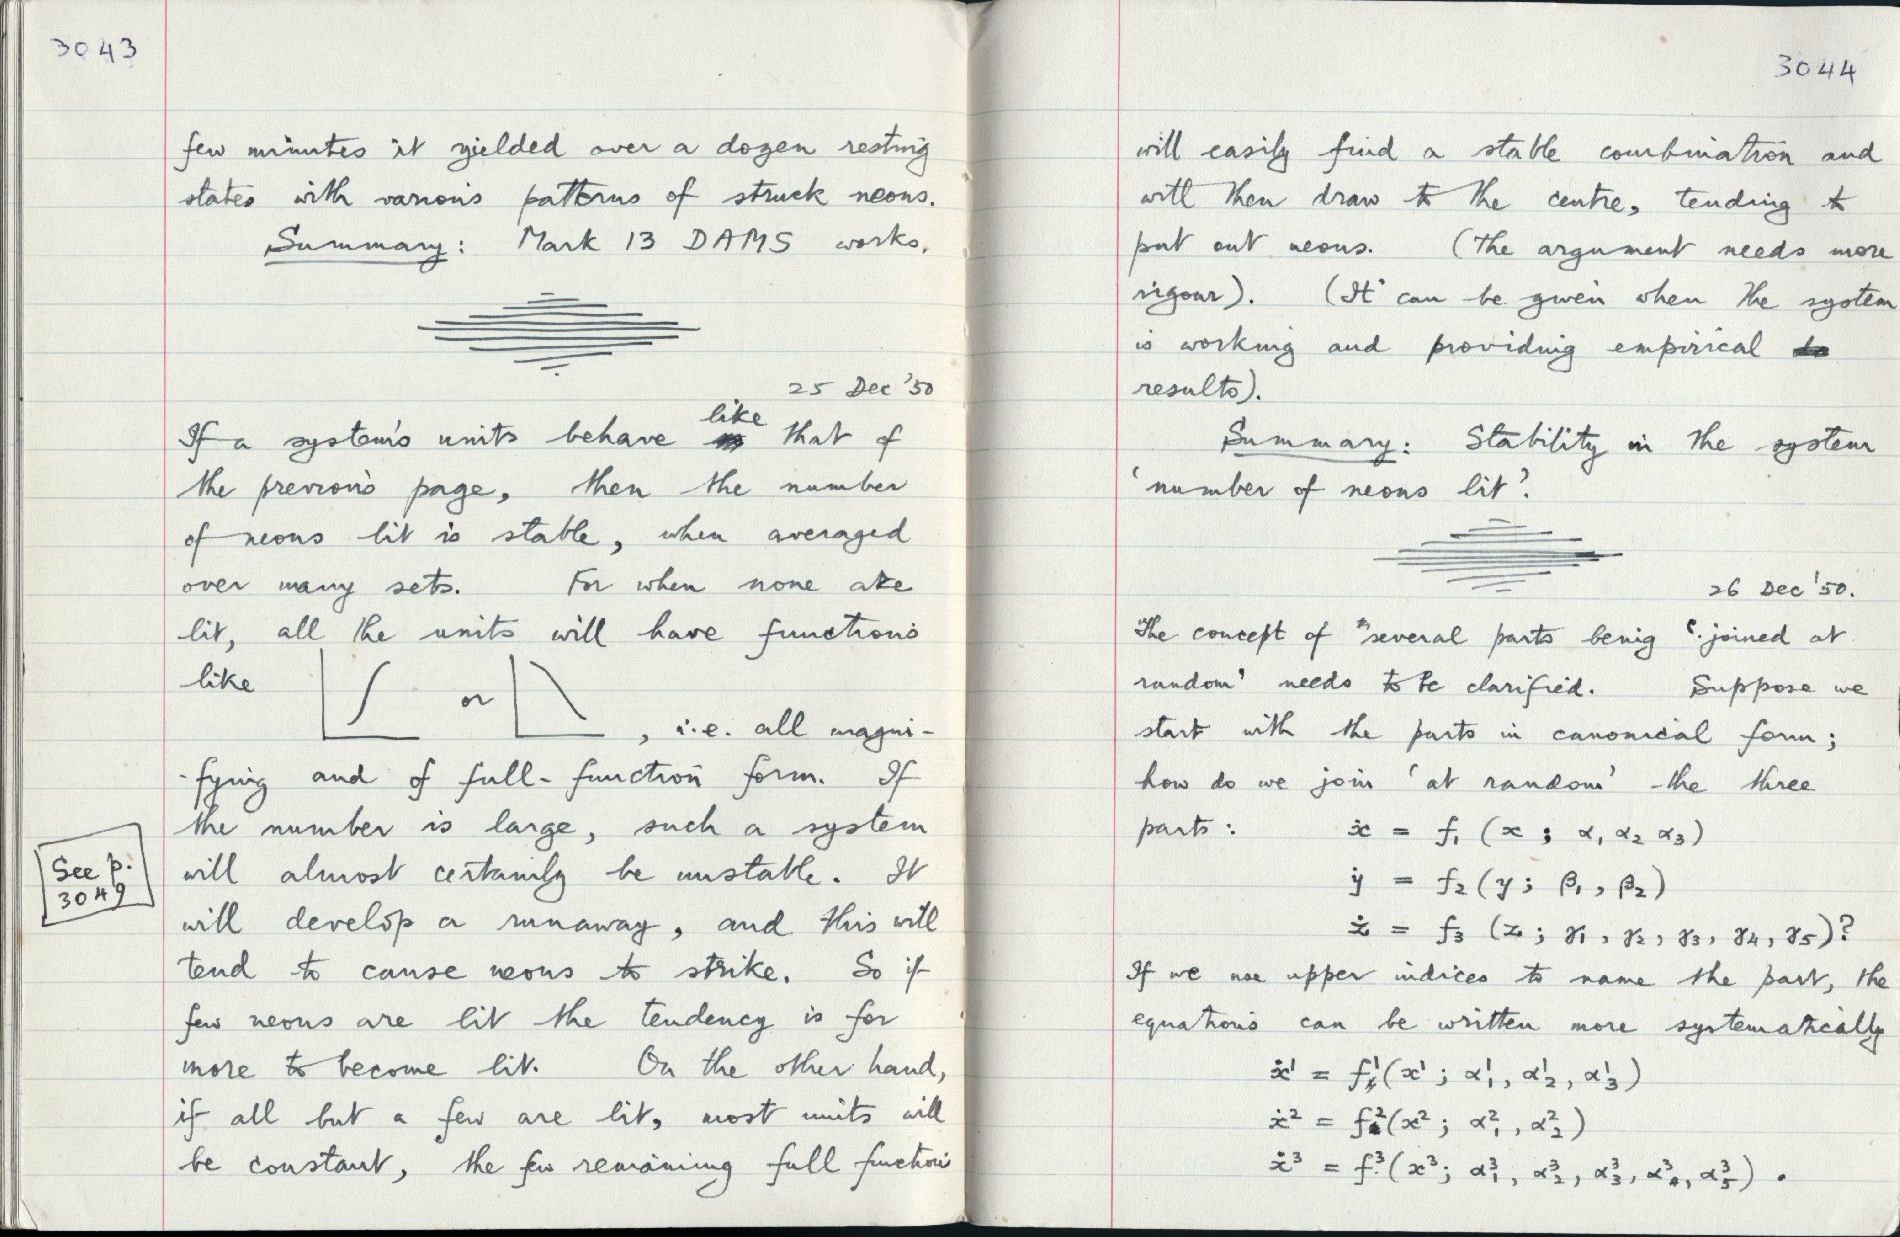 3043
few minutes it yielded over a dozen resting
states with various patterns of struck neons.
Summary: Mark 13 DAMS works.
25 Dec '50
If a system's units behave like that of
the previous page, then the number
of neons lit is stable, when averaged
over many sets. For when none are
lit, all the units will have functions
like or , i.e. all magni-
-fying and of full-function form. If
the number is large, such a system
will almost certainly be unstable. It
will develop a runaway, and this will
tend to cause neons to strike. So if
few neons are lit the tendency is for
more to become lit. On the other hand,
if all but a few are lit, most units will
be constant, the few remaining full functions
See p.
3049
3044
will easily find a stable combination and
will then draw to the centre, tending to
put out neons. (The argument needs more
rigour). (It can be given when the system
is working and providing empirical
results).
Summary: Stability in the system
'number of neons lit'.
26 Dec '50.
The concept of "several parts being 'joined at
random' needs to be clarified. Suppose we
start with the parts in canonical form;
how do we join 'at random' the three
parts: ẋ = f₁ (x ; α₁ α₂ α₃)
ẏ = f₂ (y ; β₁ , β₂)
ż = f₃ (z ; γ₁ , γ₂ , γ₃ , γ₄ , γ₅)?
If we use upper indices to name the part, the
equations can be written more systematically
ẋ¹ = f¹(x¹ ; α¹₁, α¹₂, α¹₃)
ẋ² = f²(x² ; α²₁ , α²₂)
ẋ³ = f³(x³ ; α³₁ , α³₂ , α³₃ , α³₄ , α³₅) .